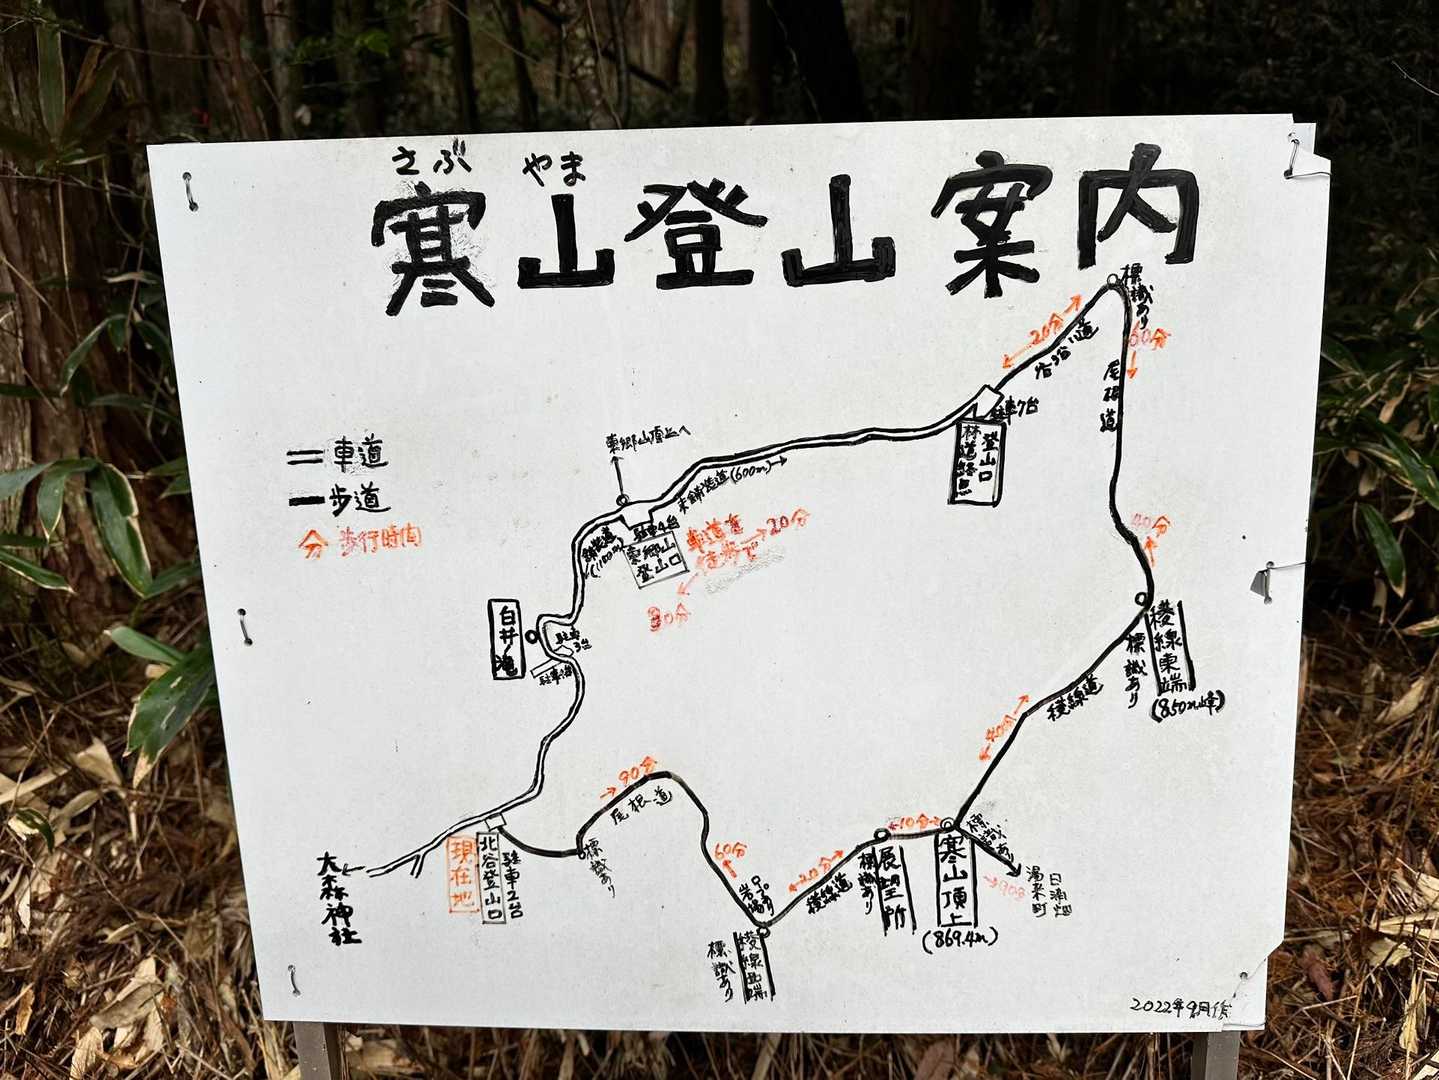 さぶ やま
寒山登山案内
標識あり
20分
沿谷道
60分
尾根道
駐車7台
登山口
林道終点
東郷山頂上へ
未舗装道(600m)
車道
歩道
分 歩行時間
駐車4台
東郷山
登山口
舗装道
車道を
徒歩で
20分
30分
白井ノ滝
駐車
3台
40分
稜線東端
標識あり
(850m峰)
稜線道
40分
90分
尾根道
標識あり
60分
岩場
ロープあり
稜線西端
標識あり
20分
稜線道
10分
展望所
標識あり
寒山頂上
(869.4m)
標識あり
90分
湯来町
日浦畑
北谷登山口
駐車2台
現在地
大森神社
2022年9月